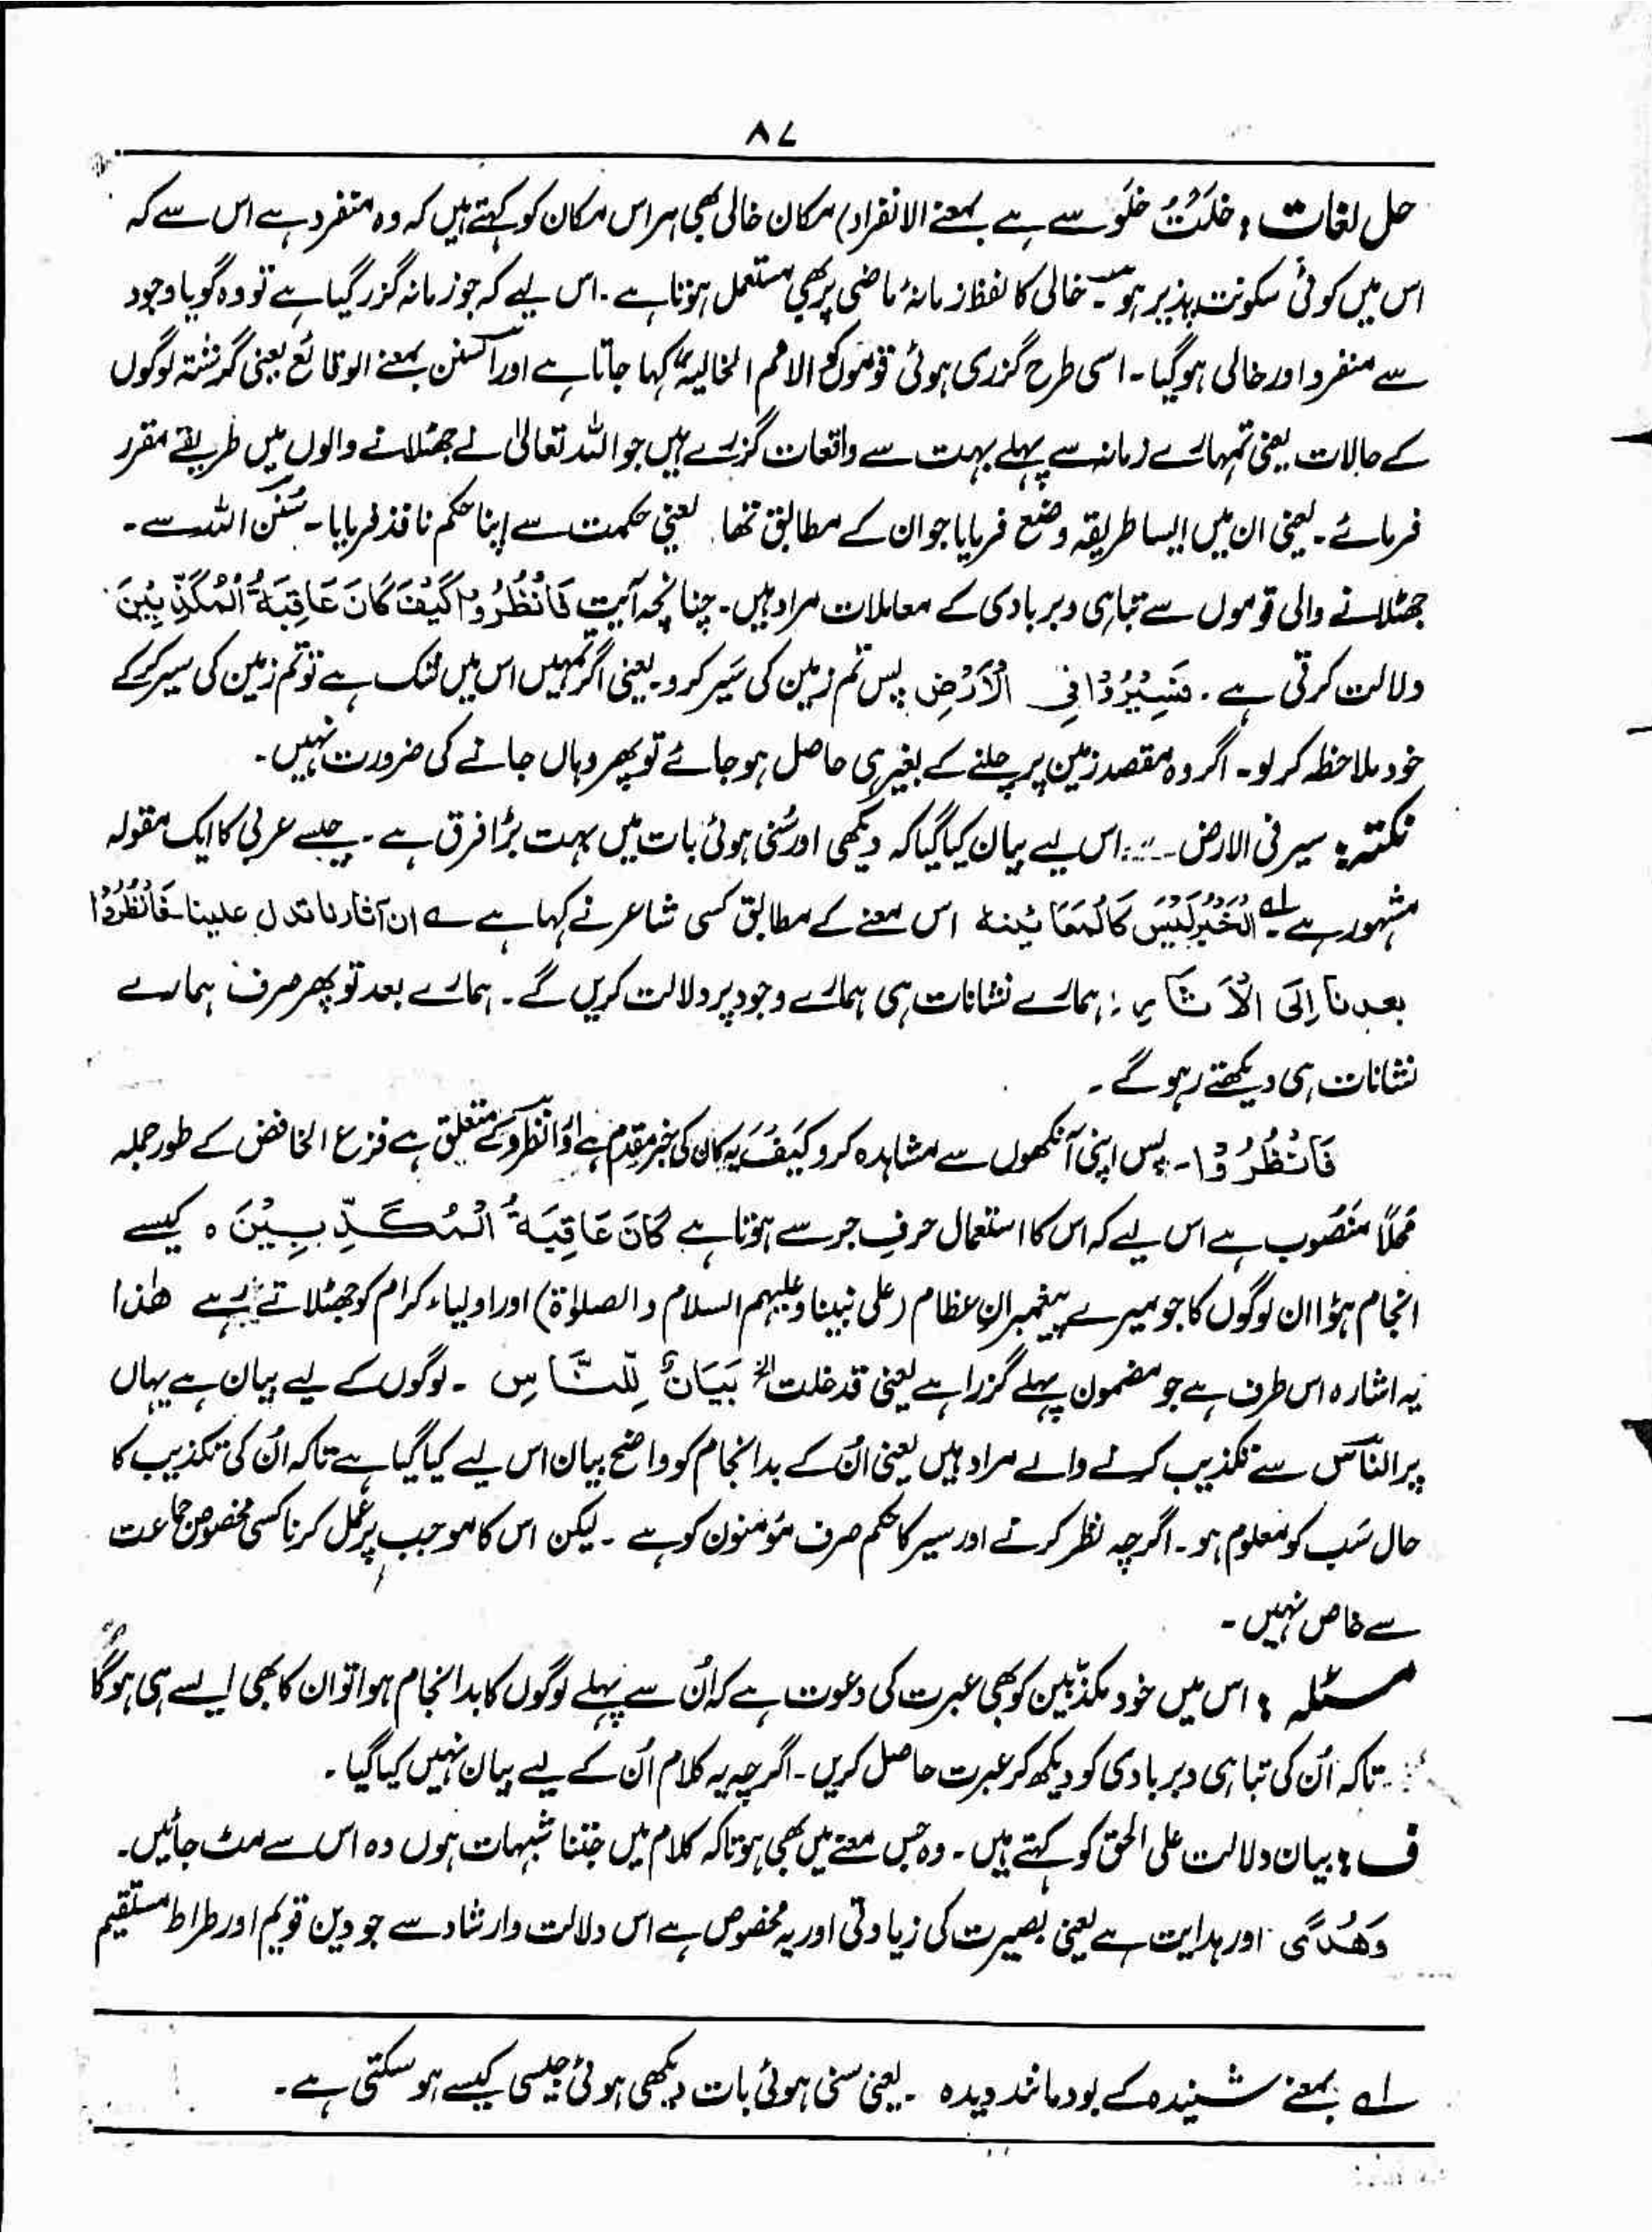 ۸۷
حل لغات : خَلَتْ خلَو سے ہے بمعنے الانفراد) مکان خالی بھی ہر اس مکان کو کہتے ہیں کہ وہ منفرد ہے اس سے کہ
اس میں کوئی سکونت پذیر ہو۔ خالی کا لفظ زمانۂ ماضی پر بھی مستعمل ہوتا ہے۔ اس لیے کہ جو زمانہ گزر گیا ہے تو وہ گویا وجود
سے منفرد اور خالی ہوگیا۔ اسی طرح گزری ہوئی قوموں کو الامم الخالیہ کہا جاتا ہے اور السنن بمعنے الوقائع یعنی گزشتہ لوگوں
کے حالات یعنی تمہارے زمانہ سے پہلے بہت سے واقعات گزرے ہیں جو اللہ تعالیٰ نے جھٹلانے والوں میں طریقے مقرر
فرمائے۔ یعنی ان میں ایسا طریقہ وضع فرمایا جو ان کے مطابق تھا یعنی حکمت سے اپنا حکم نافذ فرمایا۔ سُنن اللہ سے۔
جھٹلانے والی قوموں سے تباہی و بربادی کے معاملات مراد ہیں۔ چنانچہ آیت فَانْظُرُوا كَيْفَ كَانَ عَاقِبَةُ الْمُكَذِّبِيْنَ
دلالت کرتی ہے۔ فَسِيْرُوْا فِي الْاَرْضِ پس تم زمین کی سَیر کرو۔ یعنی اگر تمہیں اس میں شک ہے تو تم زمین کی سیر کرکے
خود ملاحظہ کر لو۔ اگر وہ مقصد زمین پر چلنے کے بغیر ہی حاصل ہو جائے تو پھر وہاں جانے کی ضرورت نہیں۔
نکتہ : سیر فی الارض ... اس لیے بیان کیا گیا کہ دیکھی اور سُنی ہوئی بات میں بہت بڑا فرق ہے۔ جیسے عربی کا ایک مقولہ
مشہور ہے لہ اَلْخَبَرُ لَيْسَ كَالْمُعَائِينَه اس معنے کے مطابق کسی شاعر نے کہا ہے ؎ ان آثارنا تدل علینا۔ فَانْظُرُوْا
بعدنا اِلَى الْاٰثَارِ : ہمارے نشانات ہی ہمارے وجود پر دلالت کریں گے۔ ہمارے بعد تو پھر صرف ہمارے
نشانات ہی دیکھتے رہو گے۔
فَانْظُرُوْا۔ پس اپنی آنکھوں سے مشاہدہ کرو كَيْفَ یہ کان کی خبر مقدم ہے اور اُنظروا کے متعلق ہے فزع الخافض کے طور جملہ
محلاً منصوب ہے اس لیے کہ اس کا استعمال حرفِ جر سے ہوتا ہے كَانَ عَاقِبَةُ الْمُكَذِّبِيْنَ ہ کیسے
انجام ہوٗا ان لوگوں کا جو میرے پیغمبرانِ عظام (علی نبینا وعلیہم السلام و الصلوٰۃ) اور اولیاء کرام کو جھٹلاتے رہے ھٰذا
یہ اشارہ اس طرف ہے جو مضمون پہلے گزرا ہے یعنی قد خلت الخ بَيَانٌ لِّلنَّاسِ ۔ لوگوں کے لیے بیان ہے یہاں
پر النّاس سے تکذیب کرنے والے مراد ہیں یعنی اُن کے بد انجام کو واضح بیان اس لیے کیا گیا ہے تاکہ اُن کی تکذیب کا
حال سَب کو معلوم ہو۔ اگرچہ نظر کرنے اور سیر کا حکم صرف مؤمنون کو ہے ۔ لیکن اس کا موجب پر عمل کرنا کسی مخصوص جماعت
سے خاص نہیں۔
مسئلہ : اس میں خود مکذّبین کو بھی عبرت کی دعوت ہے کہ اُن سے پہلے لوگوں کا بد انجام ہوا تو ان کا بھی ایسے ہی ہو گا
تاکہ اُن کی تباہی و بربادی کو دیکھ کر عبرت حاصل کریں۔ اگرچہ یہ کلام اُن کے لیے بیان نہیں کیا گیا۔
ف : بیان دلالت علی الحق کو کہتے ہیں۔ وہ جس معنے میں بھی ہو تاکہ کلام میں جتنا شبہات ہوں وہ اس سے مٹ جائیں۔
وَهُدًى اور ہدایت ہے یعنی بصیرت کی زیادتی اور یہ مخصوص ہے اس دلالت وارشاد سے جو دین قویم اور طراط مستقیم
لہ بمعنے شنیدہ کے بود مانند دیدہ ۔ یعنی سنی ہوئی بات دیکھی ہوئی جیسی کیسے ہو سکتی ہے۔